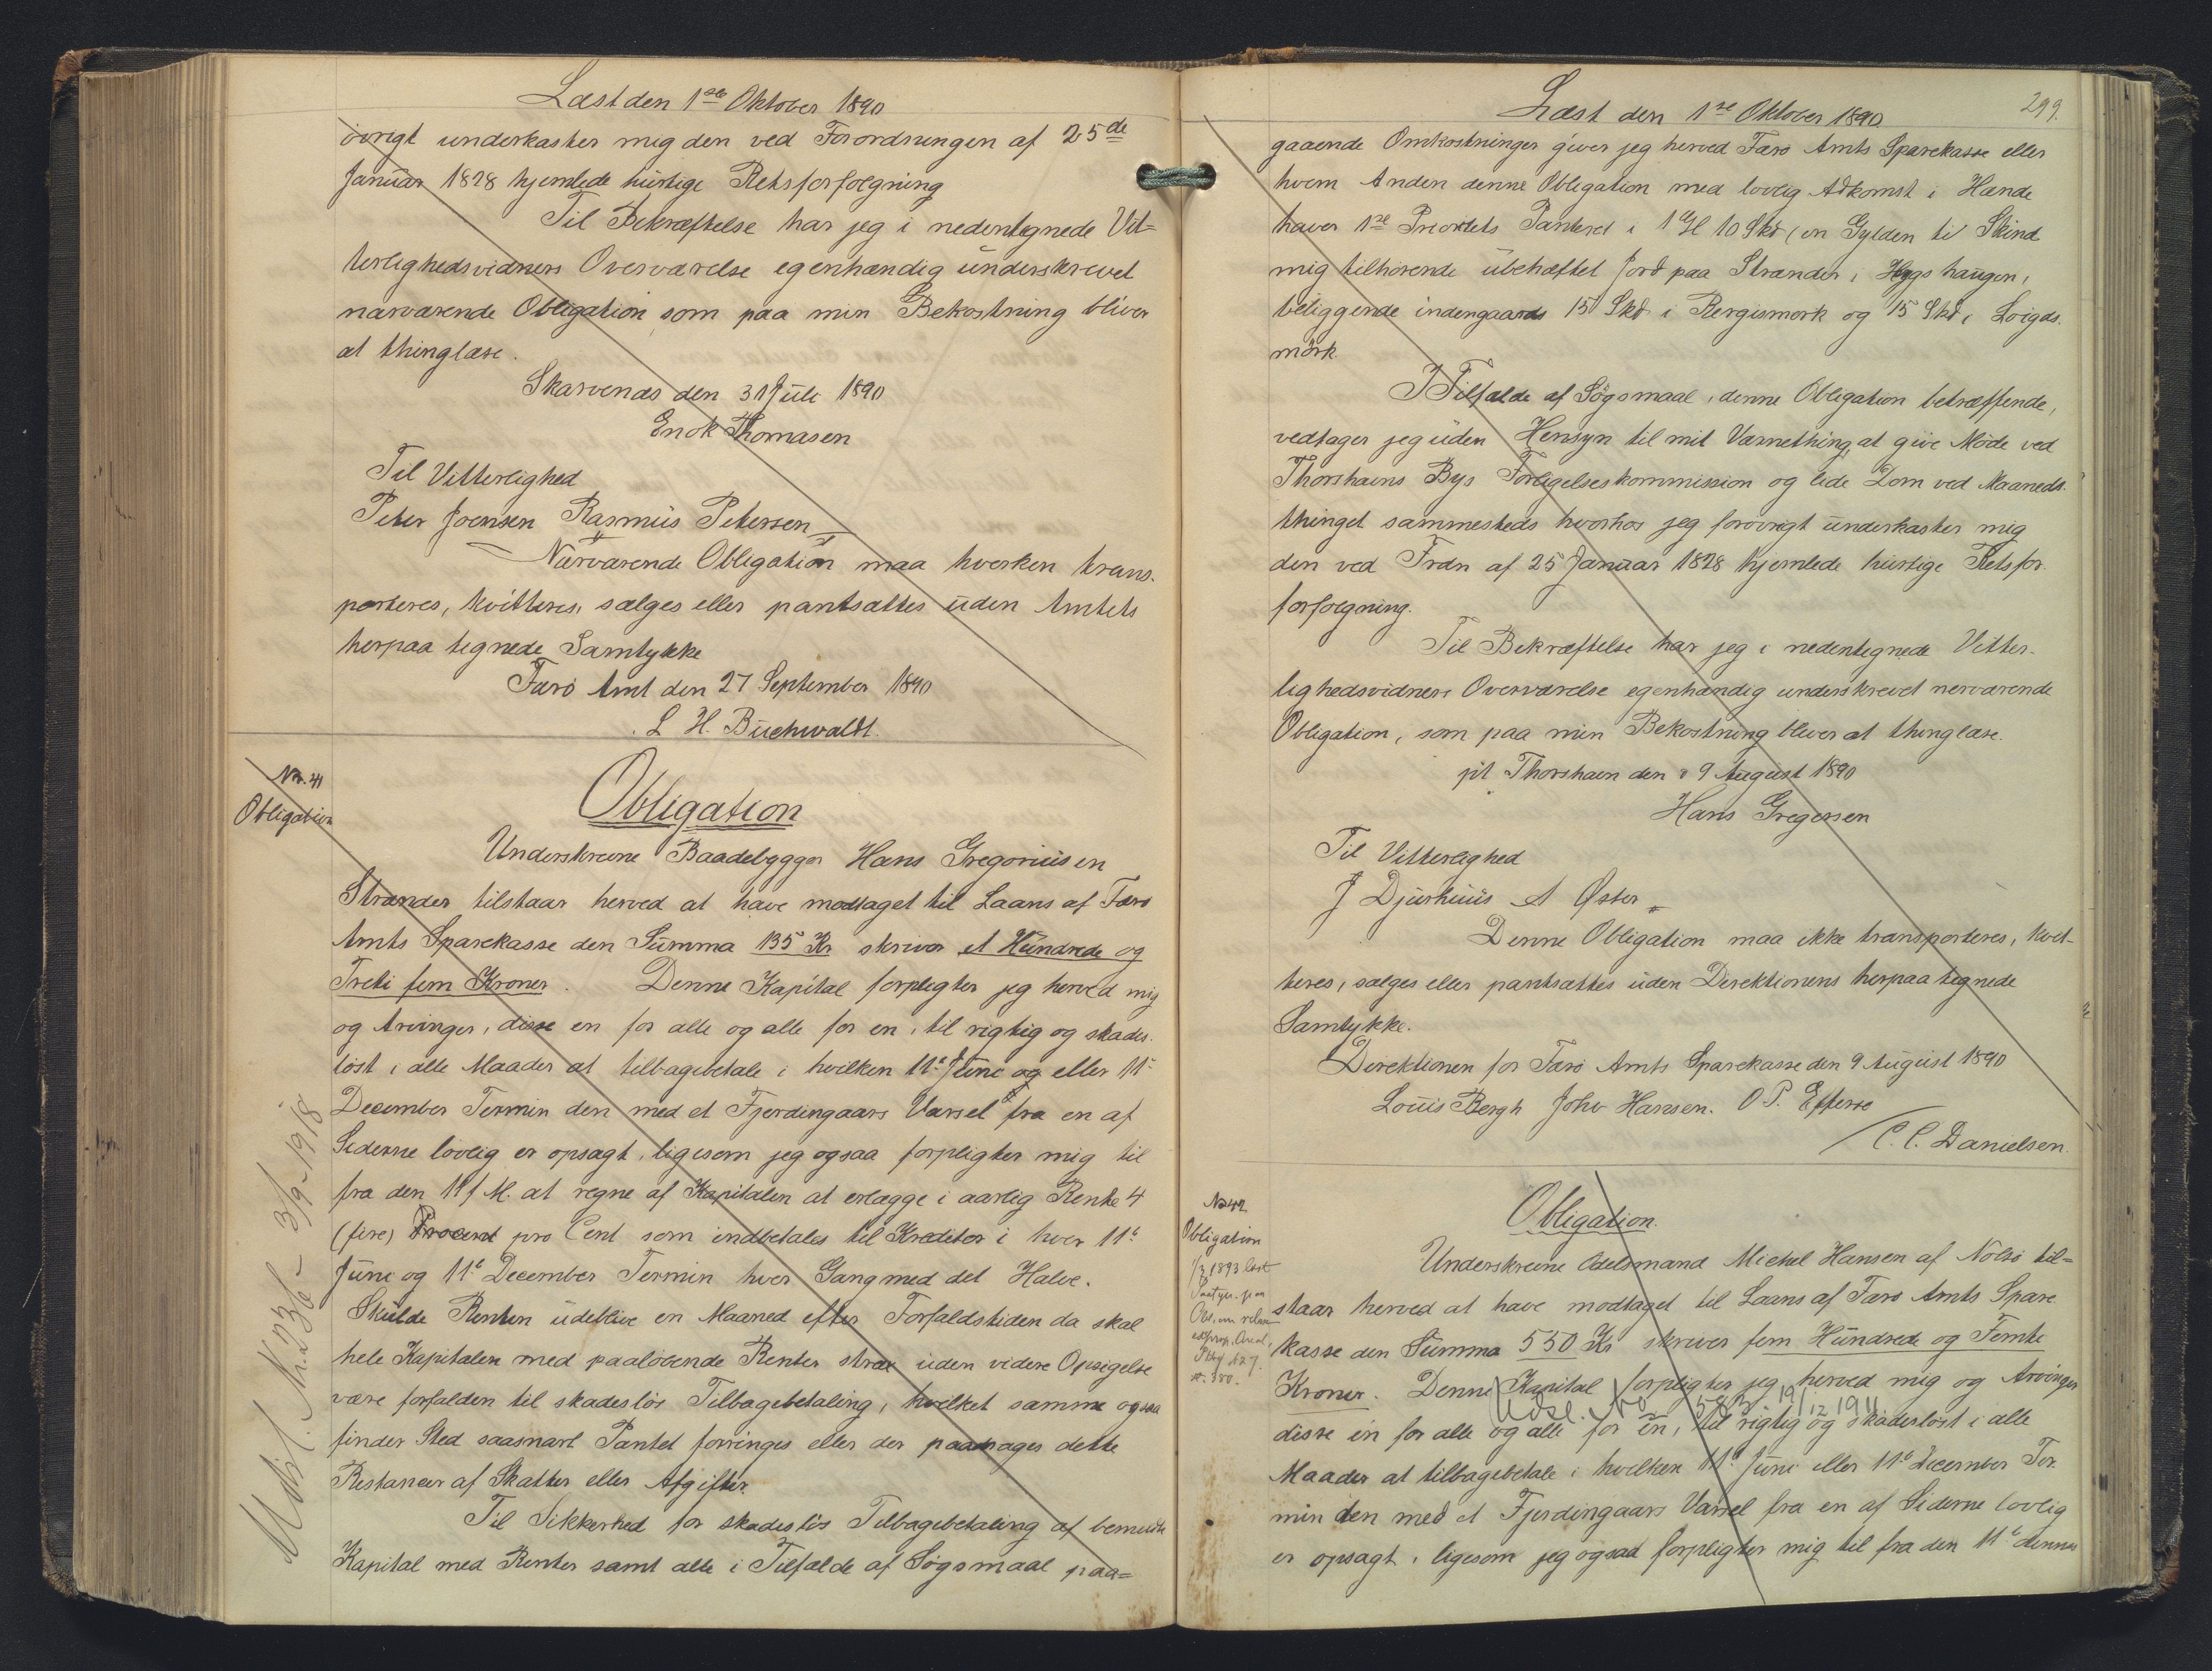 Læst den 1ste Oktober 1890
övrigt underkaster mig den ved Forordningen af 25de
Januar 1828 hjemlede hurtige Retsforfølgning
Til Bekræftelse har jeg i nedentegnede Vit-
terlighedsvidners Overværelse egenhændig underskrevet
nærværende Obligation som paa min Bekostning bliver
at thinglæse.
Skarvenæs den 31 Juli 1890
Enok Thomasen
Til Vitterlighed
Peter Joensen Rasmus Petersen
Nærværende Obligation maa hverken trans-
porteres, kvitteres, sælges eller pantsættes uden Amtets
herpaa tegnede Samtykke
Færö Amt den 27 September 1890
L. H. Buchwaldt.
No. 41
Obligation
Obligation
Underskrevne Baadebygger Hans Gregoriusen
Strænder tilstaar herved at have modtaget til Laans af Færö
Amts Sparekasse den Summa 135 Kr skriver et Hundrede og
Treti fem Kroner. Denne Kapital forpligter jeg herved mig
og Arvinger, disse en for alle og alle for en, til rigtig og skades-
löst i alle Maader at tilbagebetale i hvilken 11te Juni og eller 11te
December Termin den med et Fjerdingaars Varsel fra en af
Siderne lovlig er opsagt, ligesom jeg ogsaa forpligter mig til
fra den 11 f M. at regne af Kapitalen at erlægge i aarlig Rente 4
(fire) Procent pro Cent som indbetales til Kreditor i hver 11te
Juni og 11te December Termin hver Gang med det Halve.
Skulde Renten udeblive en Maaned efter Forfaldstiden da skal
hele Kapitalen med paalöbende Renter strax uden videre Opsigelse
være forfalden til skadeslös Tilbagebetaling, hvilket samme ogsaa
finder Sted saasnart Pantet forringes eller der paadrages dette
Restancer af Skatter eller Afgifter.
Til Sikkerhed for skadeslös Tilbagebetaling af bemeldte
Kapital med Renter samt alle i Tilfælde af Sögsmaal paa-
Udsl. Nr. 236 - 3/9-1918
Læst den 1ste Oktober 1890
299.
gaaende Omkostninger giver jeg herved Færö Amts Sparekasse eller
hvem Anden denne Obligation med lovlig Adkomst i Hænde
haver 1ste Prioritets Panteret i 1 Gl 10 Skd (en Gylden ti Skind
mig tilhörende ubehæftet Jord paa Strænder i Hygshaugen,
beliggende indengaards 15 Skd i Rergismørk og 15 Skd i Loigds-
mörk
I Tilfælde af Sögsmaal, denne Obligation betræffende,
vedtager jeg uden Hensyn til mit Værnething, at give Möde ved
Thorshavns Bys Forligelseskommission og lide Dom ved Maaneds-
thinget sammesteds hvorhos jeg forövrigt underkaster mig
den ved Frdn af 25 Januar 1828 hjemlede hurtige Retsfor-
forfølgning.
Til Bekræftelse har jeg i nedentegnede Vitter-
lighedsvidners Overværelse egenhændig underskrevet nerværende
Obligation, som paa min Bekostning bliver at thinglæse.
pt Thorshavn den 9 August 1890
Hans Gregersen
Til Vitterlighed
J Djurhuus A Øster
Denne Obligation maa ikke transporteres, kvit-
teres, sælges eller pantsættes uden Direktionens herpaa tegnede
Samtykke.
Direktionen for Færö Amts Sparekasse den 9 August 1890
Louis Bergh Johs Hansen. O P. Effersø
C. C. Danielsen.
No 42
Obligation
1893 læst
Obligation.
Underskrevne Odelsmand Michal Hansen af Nolsö til-
staar herved at have modtaget til Laans af Færö Amts Spare
kasse den Summa 550 Kr skriver fem Hundrede og Femti
Kroner. Denne Kapital forpligter jeg herved mig og Arvinger
Udsl. No 583 19/12 1911
disse en for alle og alle for en, til rigtig og skadeslöst i alle
Maader at tilbagebetale i hvilken 11te Juni eller 11te December Ter-
min den med et Fjerdingaars Varsel fra en af Siderne lovlig
er opsagt, ligesom jeg ogsaa forpligter mig til fra den 11te dennes